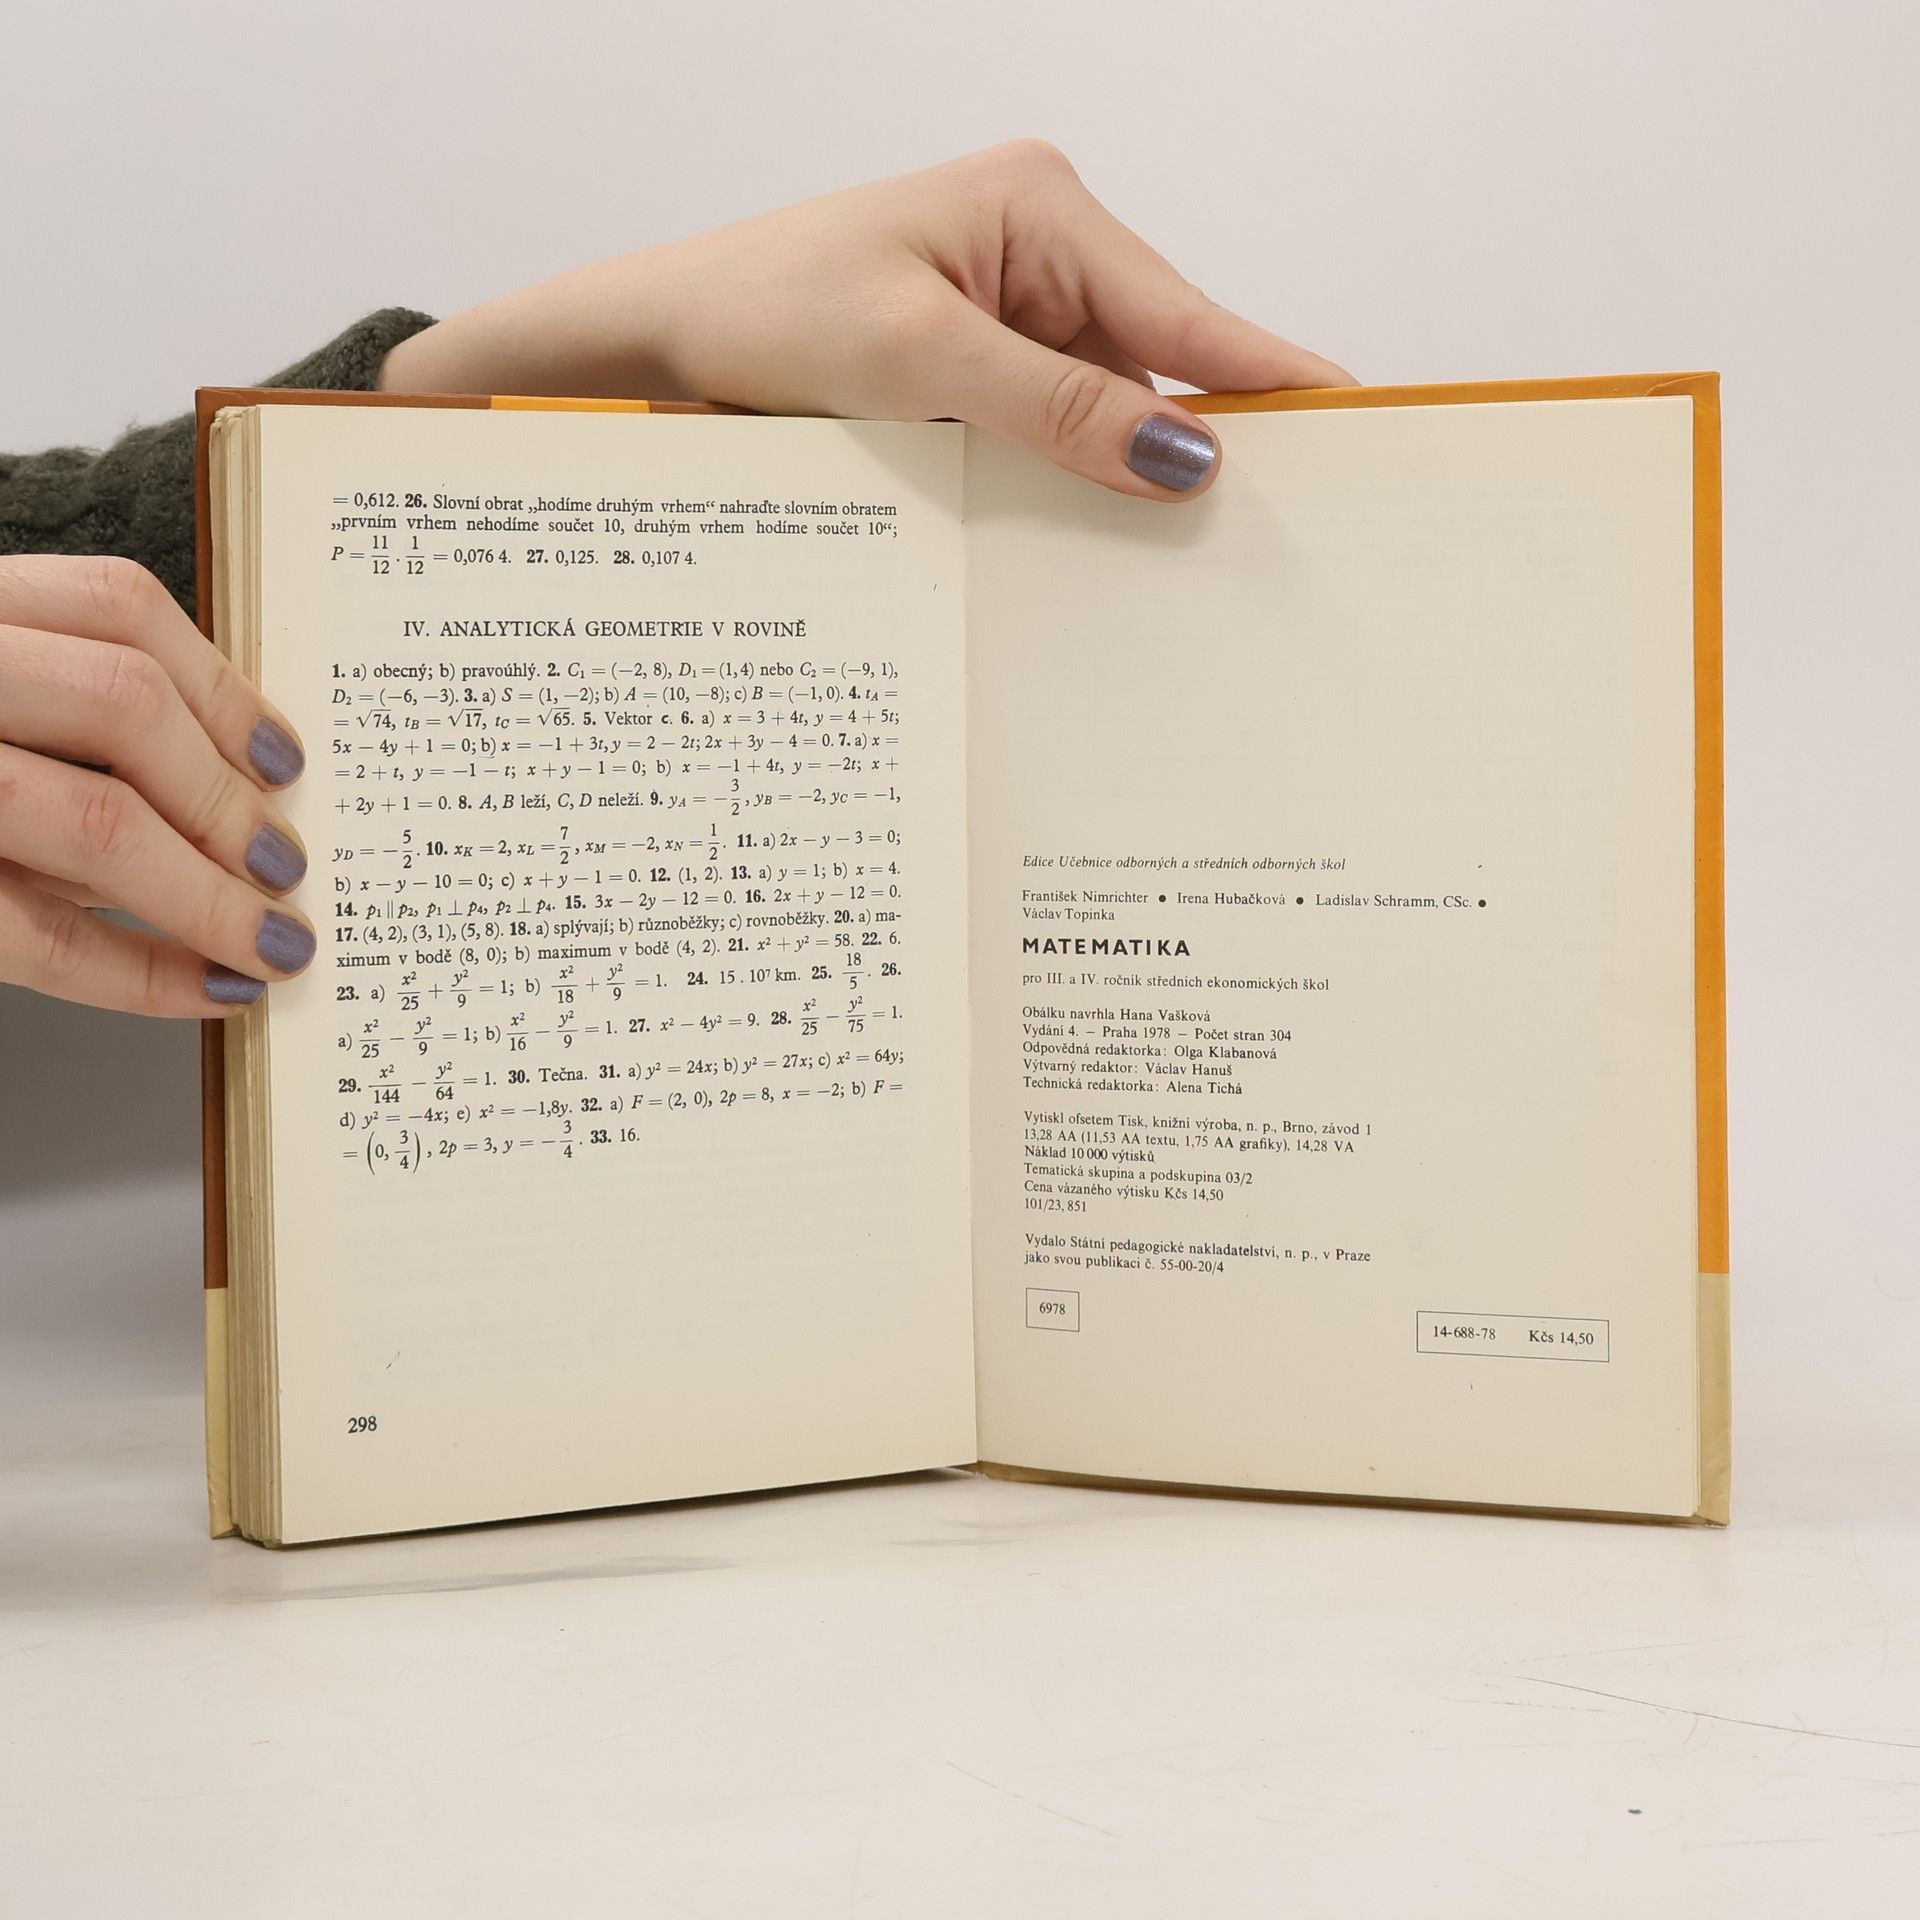 = 0,612. 26. Slovní obrat „hodíme druhým vrhem“ nahraďte slovním obratem
„prvním vrhem nehodíme součet 10, druhým vrhem hodíme součet 10“;
P = 11/12 . 1/12 = 0,076 4. 27. 0,125. 28. 0,107 4.
IV. ANALYTICKÁ GEOMETRIE V ROVINĚ
1. a) obecný; b) pravoúhlý. 2. C₁ = (−2, 8), D₁ = (1, 4) nebo C₂ = (−9, 1),
D₂ = (−6, −3). 3. a) S = (1, −2); b) A = (10, −8); c) B = (−1, 0). 4. t_A =
= √74, t_B = √17, t_C = √65. 5. Vektor c. 6. a) x = 3 + 4t, y = 4 + 5t;
5x − 4y + 1 = 0; b) x = −1 + 3t, y = 2 − 2t; 2x + 3y − 4 = 0. 7. a) x =
= 2 + t, y = −1 − t; x + y − 1 = 0; b) x = −1 + 4t, y = −2t; x +
+ 2y + 1 = 0. 8. A, B leží, C, D neleží. 9. y_A = −3/2, y_B = −2, y_C = −1,
y_D = −5/2. 10. x_K = 2, x_L = 7/2, x_M = −2, x_N = 1/2. 11. a) 2x − y − 3 = 0;
b) x − y − 10 = 0; c) x + y − 1 = 0. 12. (1, 2). 13. a) y = 1; b) x = 4.
14. p₁ ∥ p₂, p₁ ⊥ p₄, p₂ ⊥ p₄. 15. 3x − 2y − 12 = 0. 16. 2x + y − 12 = 0.
17. (4, 2), (3, 1), (5, 8). 18. a) splývají; b) různoběžky; c) rovnoběžky. 20. a) ma-
ximum v bodě (8, 0); b) maximum v bodě (4, 2). 21. x² + y² = 58. 22. 6.
23. a) x²/25 + y²/9 = 1; b) x²/18 + y²/9 = 1. 24. 15 . 10⁷ km. 25. 18/5. 26.
a) x²/25 − y²/9 = 1; b) x²/16 − y²/9 = 1. 27. x² − 4y² = 9. 28. x²/25 − y²/75 = 1.
29. x²/144 − y²/64 = 1. 30. Tečna. 31. a) y² = 24x; b) y² = 27x; c) x² = 64y;
d) y² = −4x; e) x² = −1,8y. 32. a) F = (2, 0), 2p = 8, x = −2; b) F =
= (0, 3/4), 2p = 3, y = −3/4. 33. 16.
298
Edice Učebnice odborných a středních odborných škol
František Nimrichter ● Irena Hubačková ● Ladislav Schramm, CSc. ●
Václav Topinka
MATEMATIKA
pro III. a IV. ročník středních ekonomických škol
Obálku navrhla Hana Vašková
Vydání 4. – Praha 1978 – Počet stran 304
Odpovědná redaktorka: Olga Klabanová
Výtvarný redaktor: Václav Hanuš
Technická redaktorka: Alena Tichá
Vytiskl ofsetem Tisk, knižní výroba, n. p., Brno, závod 1
13,28 AA (11,53 AA textu, 1,75 AA grafiky), 14,28 VA
Náklad 10 000 výtisků
Tematická skupina a podskupina 03/2
Cena vázaného výtisku Kčs 14,50
101/23, 851
Vydalo Státní pedagogické nakladatelství, n. p., v Praze
jako svou publikaci č. 55-00-20/4
6978
14-688-78 Kčs 14,50